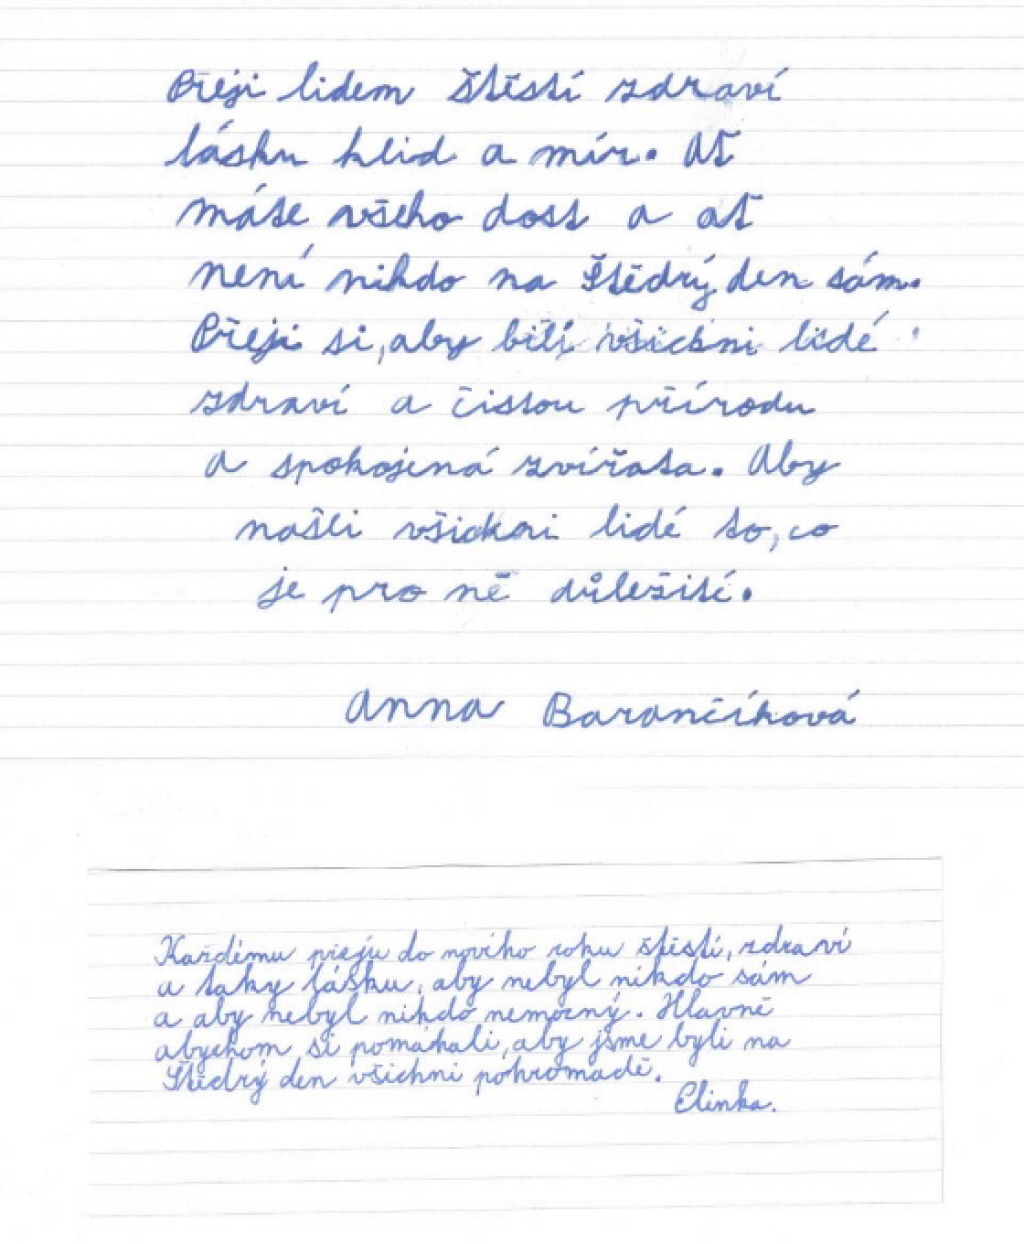 Přeji lidem štěstí zdraví
lásku klid a mír. Ať
máte všeho dost a ať
není nikdo na Štědrý den sám.
Přeji si, aby bili všichni lidé
zdraví a čistou přírodu
a spokojená zvířata. Aby
našli všickni lidé to, co
je pro ně důležití.
Anna Barančíková
Každému přeju do nového roku štěstí, zdraví
a taky lásku, aby nebyl nikdo sám
a aby nebyl nikdo nemocný. Hlavně
abychom si pomáhali, aby jsme byli na
Štědrý den všichni pohromadě.
Elinka.